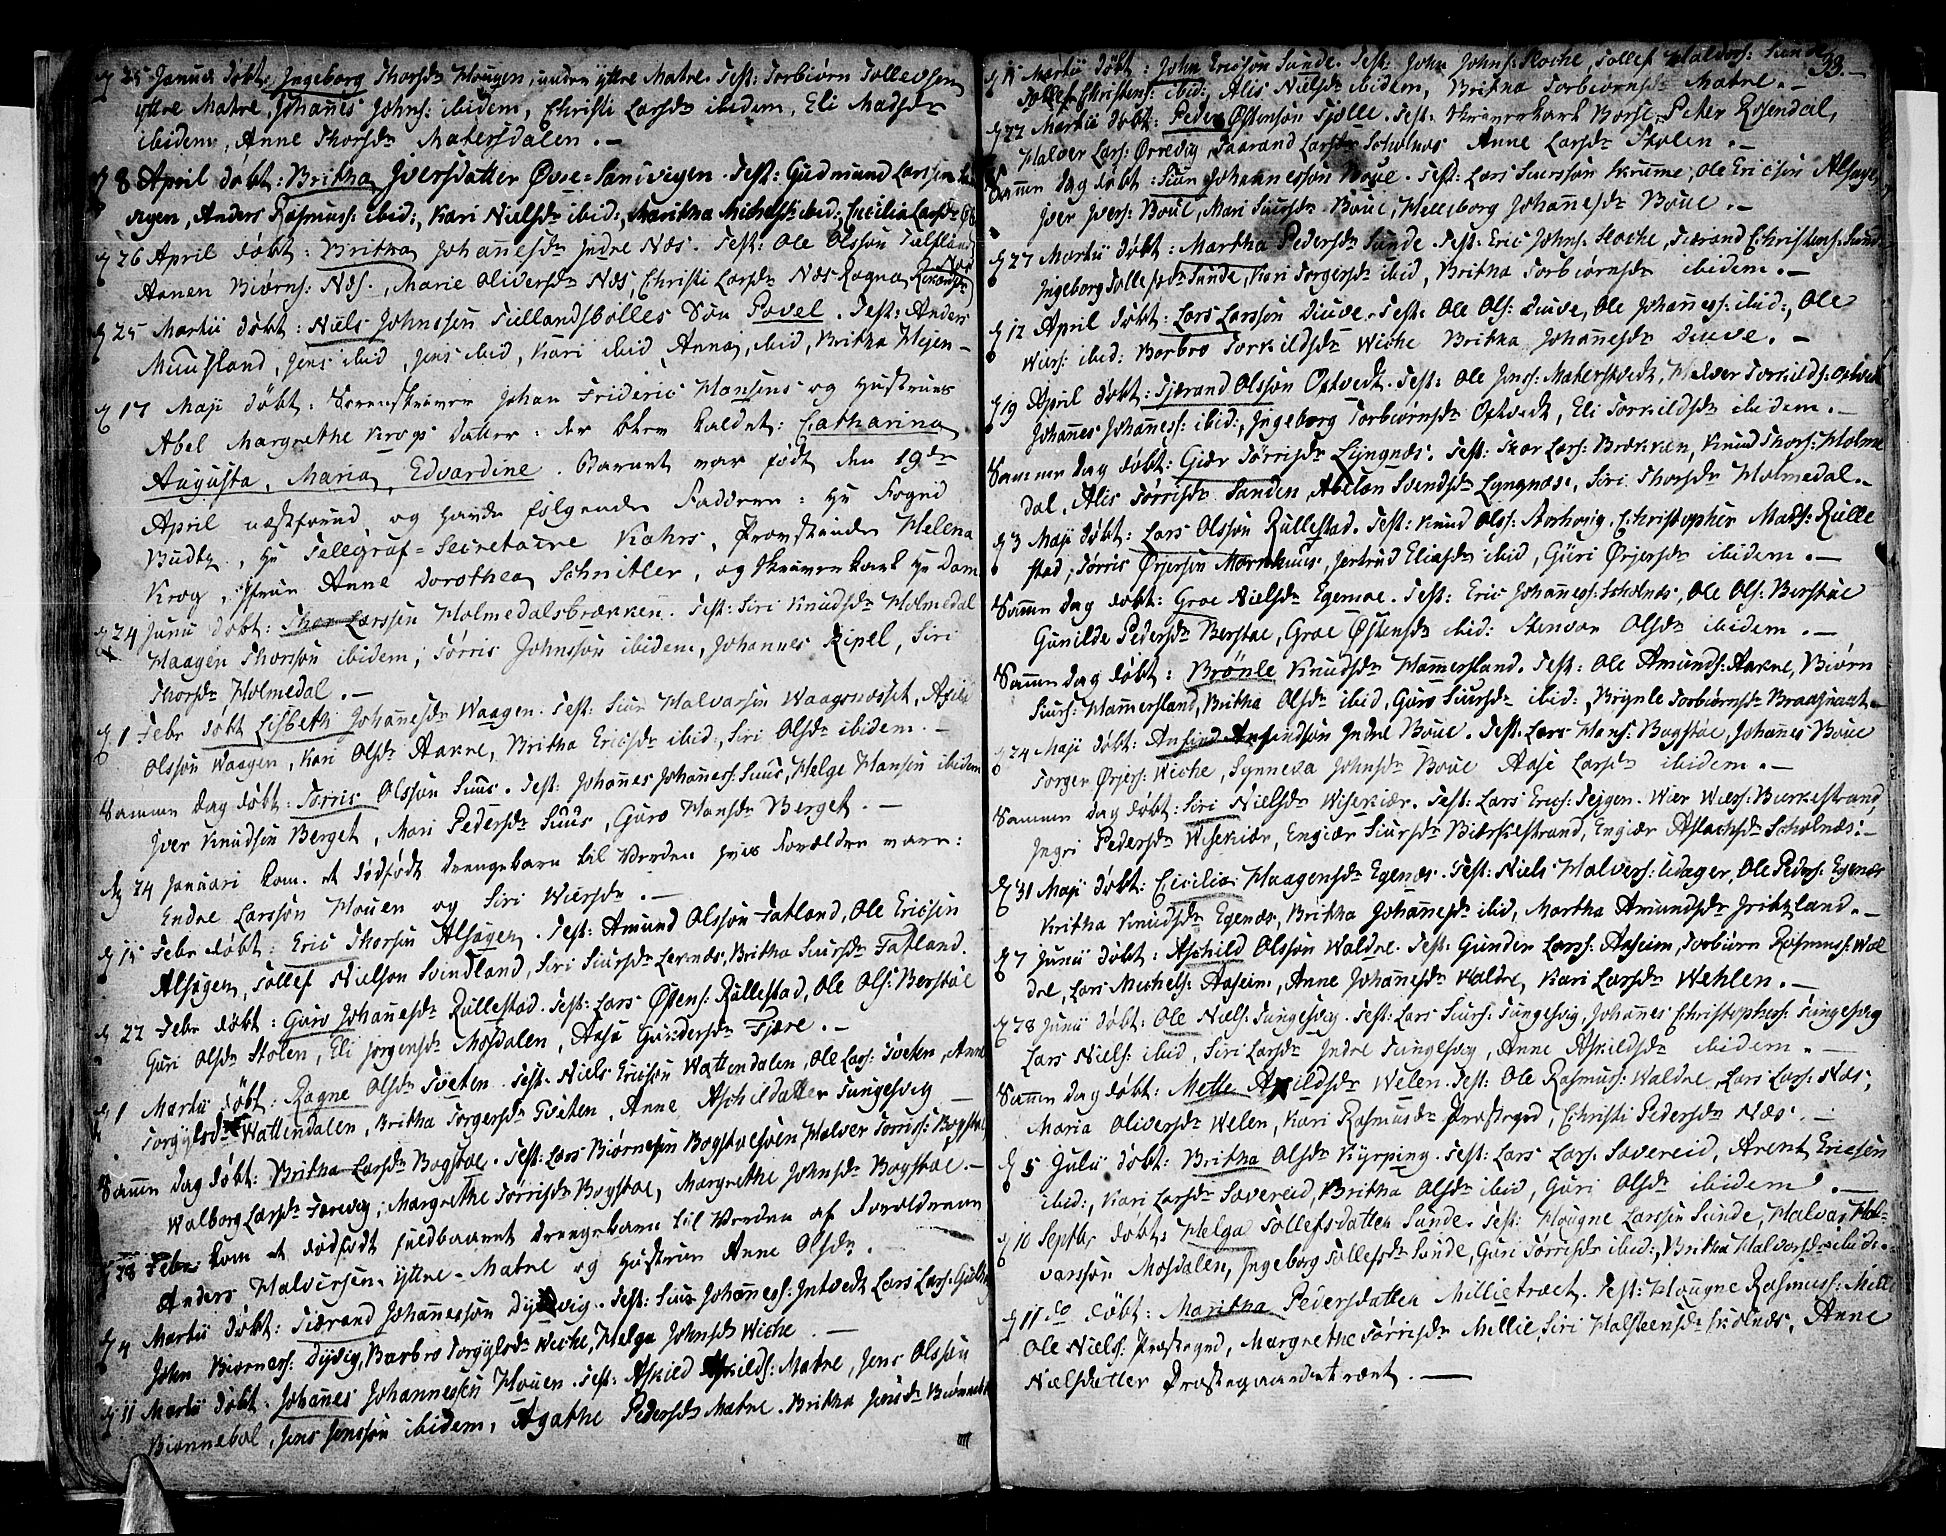 25 Januar døbt, Ingeborg Thorsdr Hougen, under yttre Matre. Test: Torbiørn Tollevsen
yttre Matre, Johañes Johns: ibidem, Christi Larsdr ibidem, Eli Madsdr
ibidem, Anne Thorsdr Matersdalen. —
8 April døbt: Britha Iversdatter Øvre-Sandvigen. Test: Gudmund Larssen
vigen, Anders Rasmuss: ibid:, Kari Nielsdr ibid:, Maritha Michelsdr ibid:, Cecilia Larsdr
26 April døbt: Britha Johañesdr Indre Næs. Test: Ole Olssøn
Annen Biørns: Næs., Marie Olidersdr Næs, Christi Larsdr Næs, Ragna
25 Martii døbt: Niels Johnssøn Tullandsbølles Søn Povel. Test: Anders
Muusland, Jens ibid, Jens ibid, Kari ibid Anna, ibid, Britha
17 Maji døbt: Sorenskriver Johan Frideric Hansens og Hustrues
Abel Margrethe Krogs datter: der blev kaldet: Catharina
Augusta, Maria, Edvardine. Barnet var født den 19de
April næstforrud, og havde følgende Faddere: Hr Foged
Budtz, Hr Telegraf-Secretaire Kahrs, Provstinde Helena
Krog, Frue Anne Dorothea Schnitler, og Skriverkarl Hr Dam
24 Junii døbt: Thor Larssøn Holmedalsbrækken. Test: Siri Knudsdr Holmedal
Haagen Thorssøn ibidem, Tørris Johnssøn ibidem, Johannes Ripel, Siri
Thorsdr Holmedal. —
1 Febr døbt Lisbeth Johañesdr Waagen. Test: Siur Halvarsøn Waagsnesset,
Olssøn Waagen, Kari Olsdr Aakre, Britha Ericsdr ibid:, Siri Olsdr ibidem. —
Samme dag døbt: Tørris Olssøn Suus. Test: Johañes Johaness: Suus, Helge Hansøn ibidem
Iver Knudsøn Berget, Mari Pedersdr Suus, Guro Hansdr Berget. —
24 Januari kom et dødfødt drengebarn til Verden hvis Forældre vare:
Endre Larssøn Houen og Siri Wiersdr. —
15 Febr døbt: Eric Thorsøn Alsagen. Test: Amund Olssøn Fatland, Ole Ericsøn
Alsagen, Tollef Nielsøn Svindland, Siri Siursdr Leknæs, Britha Siursdr Fatland.
22 Febr døbt: Guro Johañesdr Rullestad. Test: Lars Østens: Rullestad, Ole Ols: Berstøl
Guri Olsdr Stølen, Eli Jørgensdr Mosdalen, Aasa Gundersdr Fjære. —
1 Martii døbt: Ragne Olsdr Tveten. Test: Niels Ericsøn Wattendalen, Ole Lars: Tveten, Anne
Torgylsdr Wattendalen, Britha Torgersdr Tveten, Anne Aschildatter Tungesvig —
Samme dag døbt: Britha Larsdr Bogstøe. Test: Lars Biørnesøn Bogstøe Halver Tørriss: Bogstøe
Walborg Larsdr Færevig, Margrethe Tørrisdr Bogstøe, Margrethe Johnsdr Bogstøe. —
28 Febr kom et dødfødt fuldbaaret drengebarn til Verden af Forældrene
Anders Halversen yttre-Matre og Hustrue Anne Olsdr.
4 Martii døbt: Tiærand Johañessøn Dyrvig. Test: Siur Johañess: Intvedt Lars Lars:
John Biørners: Dyvig, Barbro Torgylsdr Weche, Helga Johnsdr Wiche. —
11 Martii døbt. Johañes Johannesøn Houen. Test: Askild Askilds: Matre, Jens Olssøn
Biønnebøl, Jens Jenssøn ibidem, Agathe Pedersdr Matre. Britha Jensdr
33.
15 Martii døbt: John Ericsøn Sunde. Test: John Johns: Floche, Tollef Haldors: Sunde
Tollef Christens: ibid: Alis Nielsdr ibidem, Britha Torbiørnsdr Matre. —
22 Martii døbt: Peder Østensøn Tiølle. Test: Skriverkarl Borse, Peter Rosendal,
Halver Lars: Ørrevig, Taarand Larsdr Scholnæs Anne Larsdr Stølen. —
Samme dag døbt: Siur Johannessøn Boue. Test: Lars Siurssøn Skrumme, Ole Ericsøn
Iver Ivers: Boue, Mari Siursdr Boue, Hellsborg Johañesdr Boue. —
27 Martii døbt: Martha Pedersdr Sunde. Test: Eric Johns: Floche, Tiærand Christens: Sunde
Ingeborg Tollefsdr Sunde, Kari Torgersdr ibid, Britha Torbiørnsdr ibidem. —
12 April døbt: Lars Larssøn Diuve. Test: Ole Ols: Diuve, Ole Johañess: ibid:, Ole
Wiers: ibid: Barbro Torkildsdr Wiche Britha Johañesdr Diuve. —
19 April døbt: Tjærand Olssøn Østvedt. Test: Ole Jenss: Materstvedt, Halver Torkilds: Østvedt
Johañes Johañess: ibid:, Ingeborg Torbiørnsdr Østvedt, Eli Torkildsdr ibidem. —
Samme dag døbt: Giær Tørrisdr Lyngnæs. Test: Thor Lars: Brækken, Knud Thors: Holme
dal, Alis Tørrisdr Sanden, Abeløn Svendsdr Lyngnæs, Siri Thorsdr Holmedal. —
3 Maji døbt: Lars Olssøn Rullestad. Test: Knud Olss: Aarhoug, Christopher Mads: Rulle
stad, Tørris Ørjersøn Mørkhuus, Jertrud Eliasdr ibid, Guri Ørjersdr ibidem. —
Samme dag døbt: Groe Nielsdr Egenæs. Test: Eric Johañess: Scholnæs, Ole Ols: Berstøe
Gunilde Pedersdr Berstøe, Groe Østensdr ibid: Stenvor Olsdr ibidem. —
Samme dag døbt: Brønle Knudsdr Hammersland. Test: Ole Amunds: Aakre, Biørn
Siurs: Hammersland, Britha Olsdr ibid, Guro Siursdr ibid: Brynle Torbiørnsdr Braasnaat.
24 Maji døbt: Ansind Ansindsøn Indre Boue. Test. Lars Hans: Bogstøe, Johañes Boue
Torger Ørjers: Wiche, Synneva Johnsdr Boue Aase Larsdr ibidem. —
Samme dag døbt: Siri Nielsdr Wisekiær. Test: Lars Erics: Teigen. Wier Wiers: Birkestrand,
Ingri Pedersdr Wisekiær, Engiær Siursdr Biærkestrand, Engiær Aslachsdr Scholnæs. —
31 Maji døbt: Cicilia Haagensdr Egenæs. Test: Niels Halvers: Udager, Ole Peders: Egenæs
Kritha Knudsdr Egenæs, Britha Johañesdr ibid, Martha Amundsdr Fritzland. —
7 Junii døbt: Aschild Olssøn Waldre. Test: Gunder Larss: Aaseim, Torbiørn Rasmuss: Wal
dre, Lars Michels: Aaseim, Anne Johañesdr Waldre, Kari Larsdr Wehlen. —
28 Junii døbt: Ole Niels: Tungesvig. Test: Lars Siurs: Tungesvig, Johañes Christophers: Tungesvig
Lars Niels: ibid, Siri Larsdr Indre Tungesvig, Anne Askildsdr ibidem. —
Samme dag døbt: Mette Askildsdr Welen. Test: Ole Rasmus: Waldre, Lars Lars: Næs,
Maria Oliversdr Welen, Kari Rasmusdr Præstegrd, Christi Pedersdr Næs. —
5 Julii døbt: Britha Olsdr Kyrping. Test: Lars Lars: Savereid, Arent Ericsøn
ibid:, Kari Larsdr Savereid, Britha Olsdr ibid, Guri Olsdr ibidem. —
10 Septbr døbt: Helga Tollefsdatter Sunde. Test: Hougne Larssøn Sunde, Halvar Hal-
varssøn Mosdalen, Ingeborg Tollefsdr Sunde, Guri Tørrisdr ibid:, Britha Halvorsdr ibid:.
11 do døbt: Maritha Pedersdatter Millietræet. Test: Hougne Rasmuss: Melle
Ole Niels: Præstegrd, Margrethe Tørrisdr Mellie, Siri Halsteensdr Skolnæs, Anne
Nielsdatter Præstegaardstræet. —